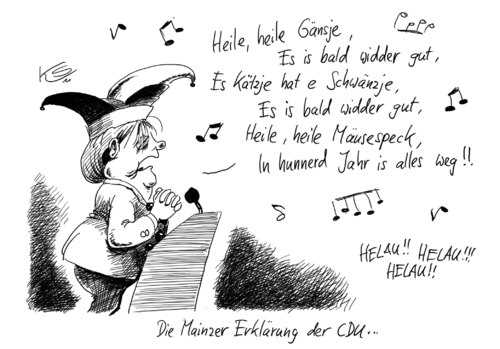 Heile, heile Gänsje,
Es is bald widder gut,
Es Kätzje hat e Schwänzje,
Es is bald widder gut,
Heile, heile Mäusespeck,
In hunnerd Jahr is alles weg!!
HELAU!! HELAU!!!
HELAU!!
Die Mainzer Erklärung der CDU...